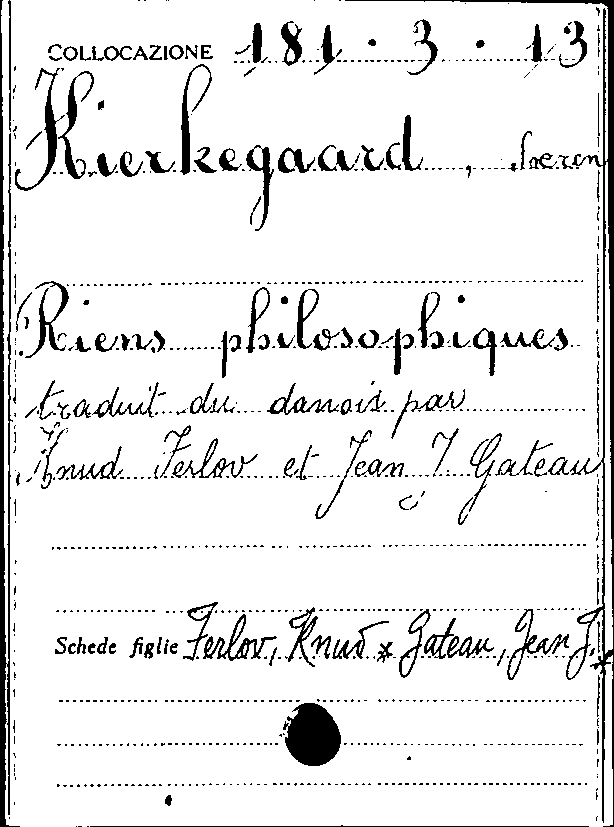 COLLOCAZIONE 181 · 3 · 13
Kierkegaard, Sœren
Riens philosophiques
traduit du danois par
Knud Ferlov et Jean J. Gateau
Schede figlie Ferlov, Knud * Gateau, Jean J. *